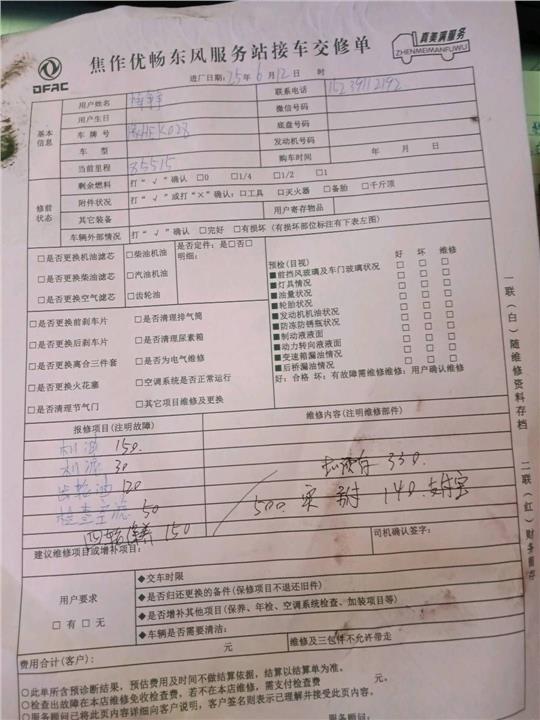 DFAC
焦作优畅东风服务站接车交修单
真美满服务
ZHENMEIMANFUWU
进厂日期：25年6月12日 时
基本信息
用户姓名
联系电话 15239112192
用户生日
微信号码
车牌号 K028
底盘号码
车型
发动机号码
当前里程 85515
购车时间 年 月 日
修前状态
剩余燃料 打“√”确认 □0 □1/4 □1/2 □1
附件状况 打“√”或打“×”确认：□工具 □灭火器 □备胎 □千斤顶
其它装备
用户寄存物品
车辆外部情况 打“√”确认 □完好 □有损坏（有损坏部位标注有下表左图）
□是否更换机油滤芯 □柴油机油
是否定件：是□否□
明细：
□是否更换柴油滤芯 □汽油机油
□是否更换空气滤芯 □齿轮油
□是否更换前刹车片 □是否清理排气筒
□是否更换后刹车片 □是否清理尿素箱
□是否更换离合三件套 □是否为电气维修
□是否更换火花塞 □空调系统是否正常运行
□是否清理节气门 □其它项维修及更换
预检（目视） 好 坏 维修
■前挡风玻璃及车门玻璃状况 □ □ □
■灯具情况 □ □ □
■油量状况 □ □ □
■轮胎状况 □ □ □
■发动机机油状况 □ □ □
■防冻防锈瓶状况 □ □ □
■制动液液面 □ □ □
■动力转向液液面 □ □ □
■变速箱漏油情况 □ □ □
■后桥漏油情况 □ □ □
好：合格 坏：有故障需维修维修：用户确认维修
报修项目（注明故障）
维修内容（注明维修部件）
机油 150.
机滤 30
齿轮油 120
检查空滤 50
四轮保养 150
330.
500. 实付 140. 支付宝
建议维修项目或增补项目：
司机确认签字：
用户要求
□有 □无
◆交车时限
◆是否归还更换的备件（保修项目不退还旧件）
◆是否增补其他项目（保养、年检、空调系统检查、加装项目等）
◆车辆是否需要清洁：
费用合计（客户）： 元
维修及三包件不允许带走
○此单所含预诊断结果，预估费用及时间不做结算依据，结算以结算单为准。
○检查出故障在本店维修免收检查费，若不在本店维修，需支付检查费 元。
○服务顾问已将此页内容详细向客户说明，客户签名则表示已理解并接受此页内容。
一联（白）随维修资料存档
二联（红）财务留存